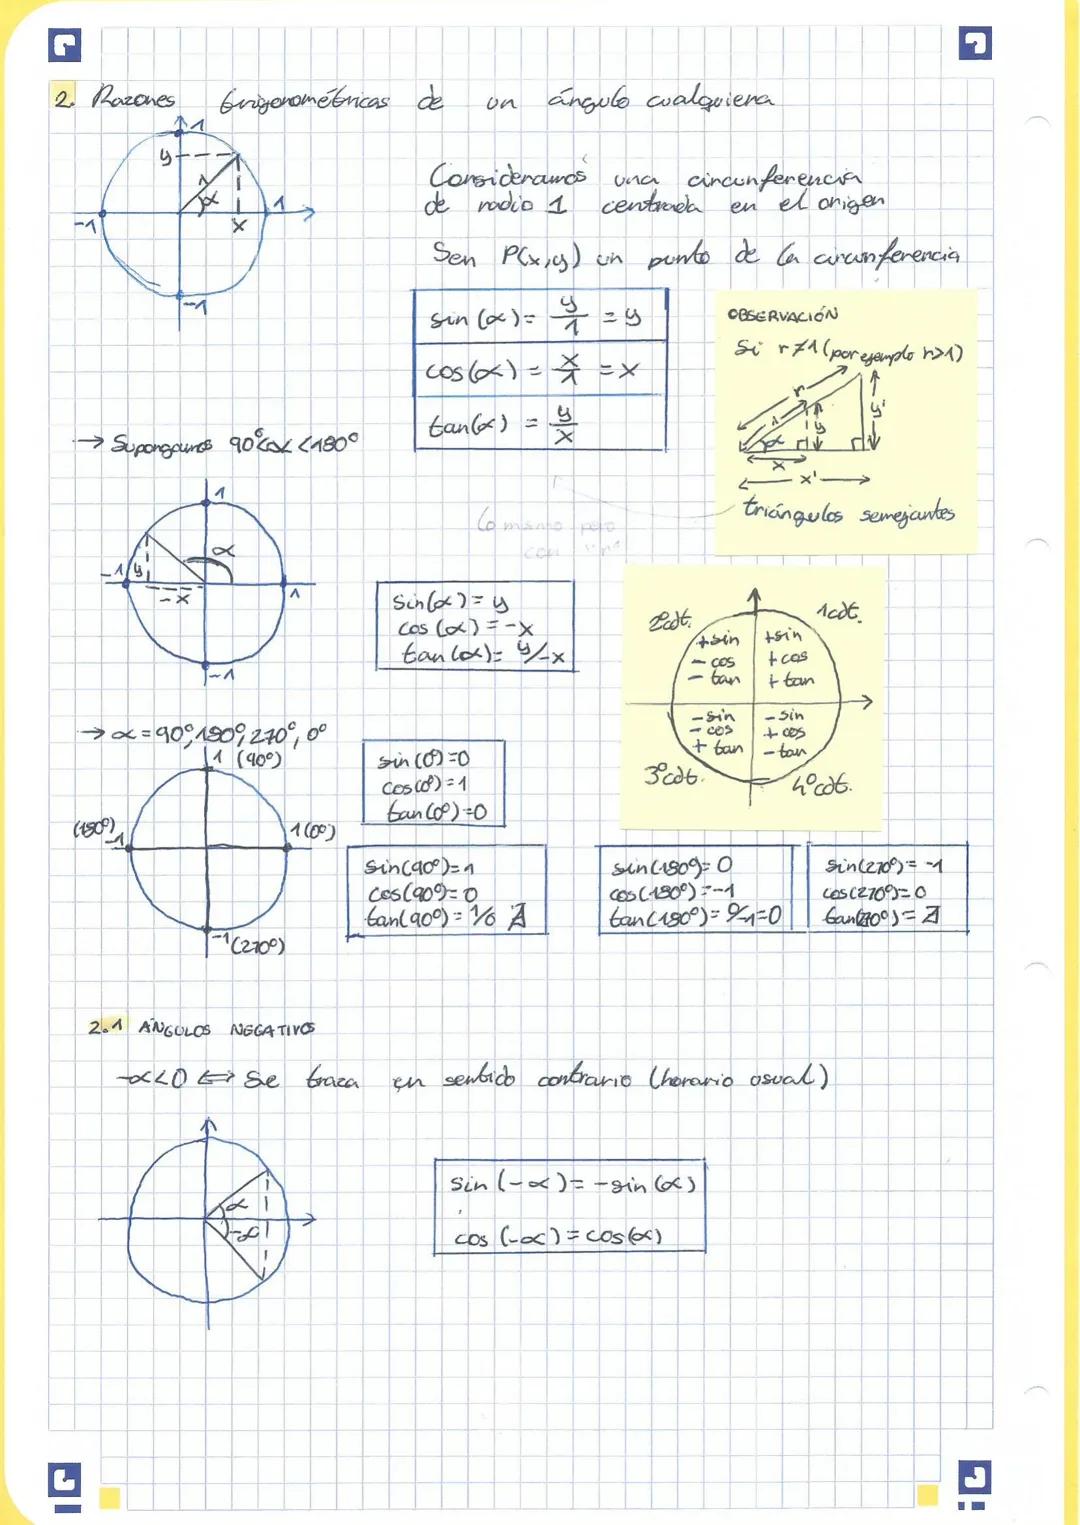 2. Razones trigonométricas de un ángulo cualquiera
1
y
1
α
1
-1
x
-1
Consideramos una circunferencia
de radio 1 centrada en el origen
Sea P(x,y) un punto de la circunferencia
sin (α) = y/1 = y
cos(α) = x/1 = x
tan(α) = y/x
OBSERVACIÓN
Si r≠1 (por ejemplo r>1)
r
1
y
y'
α
x
x'
triángulos semejantes
→ Supongamos 90º<α<180º
lo mismo pero
con "r"
1
α
-1
y
-x
1
-1
sin(α) = y
cos (α) = -x
tan (α) = y/-x
2ºcdt.
1cdt.
+sin
+sin
- cos
+ cos
- tan
+ tan
-sin
- sin
- cos
+ cos
+ tan
- tan
3ºcdt.
4ºcdt.
→ α = 90º, 180º, 270º, 0º
1 (90º)
(180º)
-1
1 (0º)
-1 (270º)
sin (0º) = 0
cos(0º) = 1
tan(0º) = 0
sin(90º) = 1
cos(90º) = 0
tan(90º) = 1/0 ∄
sin(180º) = 0
cos(180º) = -1
tan(180º) = 0/-1 = 0
sin(270º) = -1
cos(270º) = 0
tan(270º) = ∄
2.1 ÁNGULOS NEGATIVOS
-α<0 ⟺ Se traza en sentido contrario (horario usual)
α
-α
sin (-α) = -sin (α)
cos (-α) = cos(α)